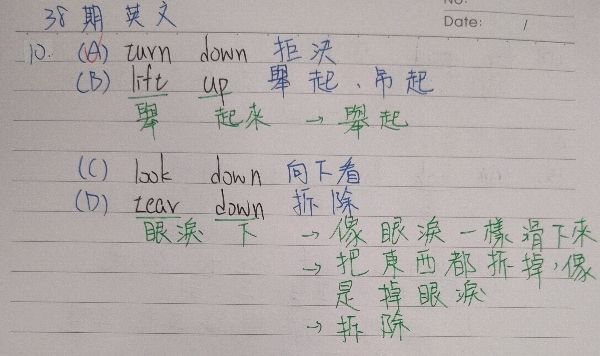 No:
Date: /
38期英文
10. (A) turn down 拒決
(B) lift up 舉起、吊起
舉 起來 → 舉起
(C) look down 向下看
(D) tear down 拆除
眼淚 下 → 像眼淚一樣滑下來
→ 把東西都拆掉,像
是掉眼淚
→ 拆除